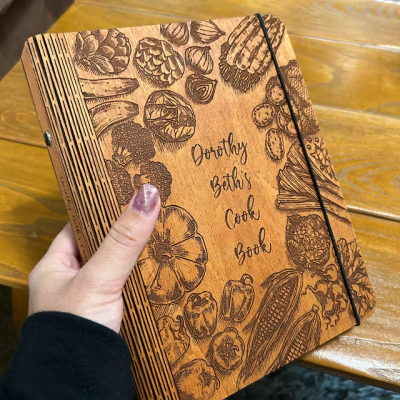 Dorothy
Beth's
Cook
Book